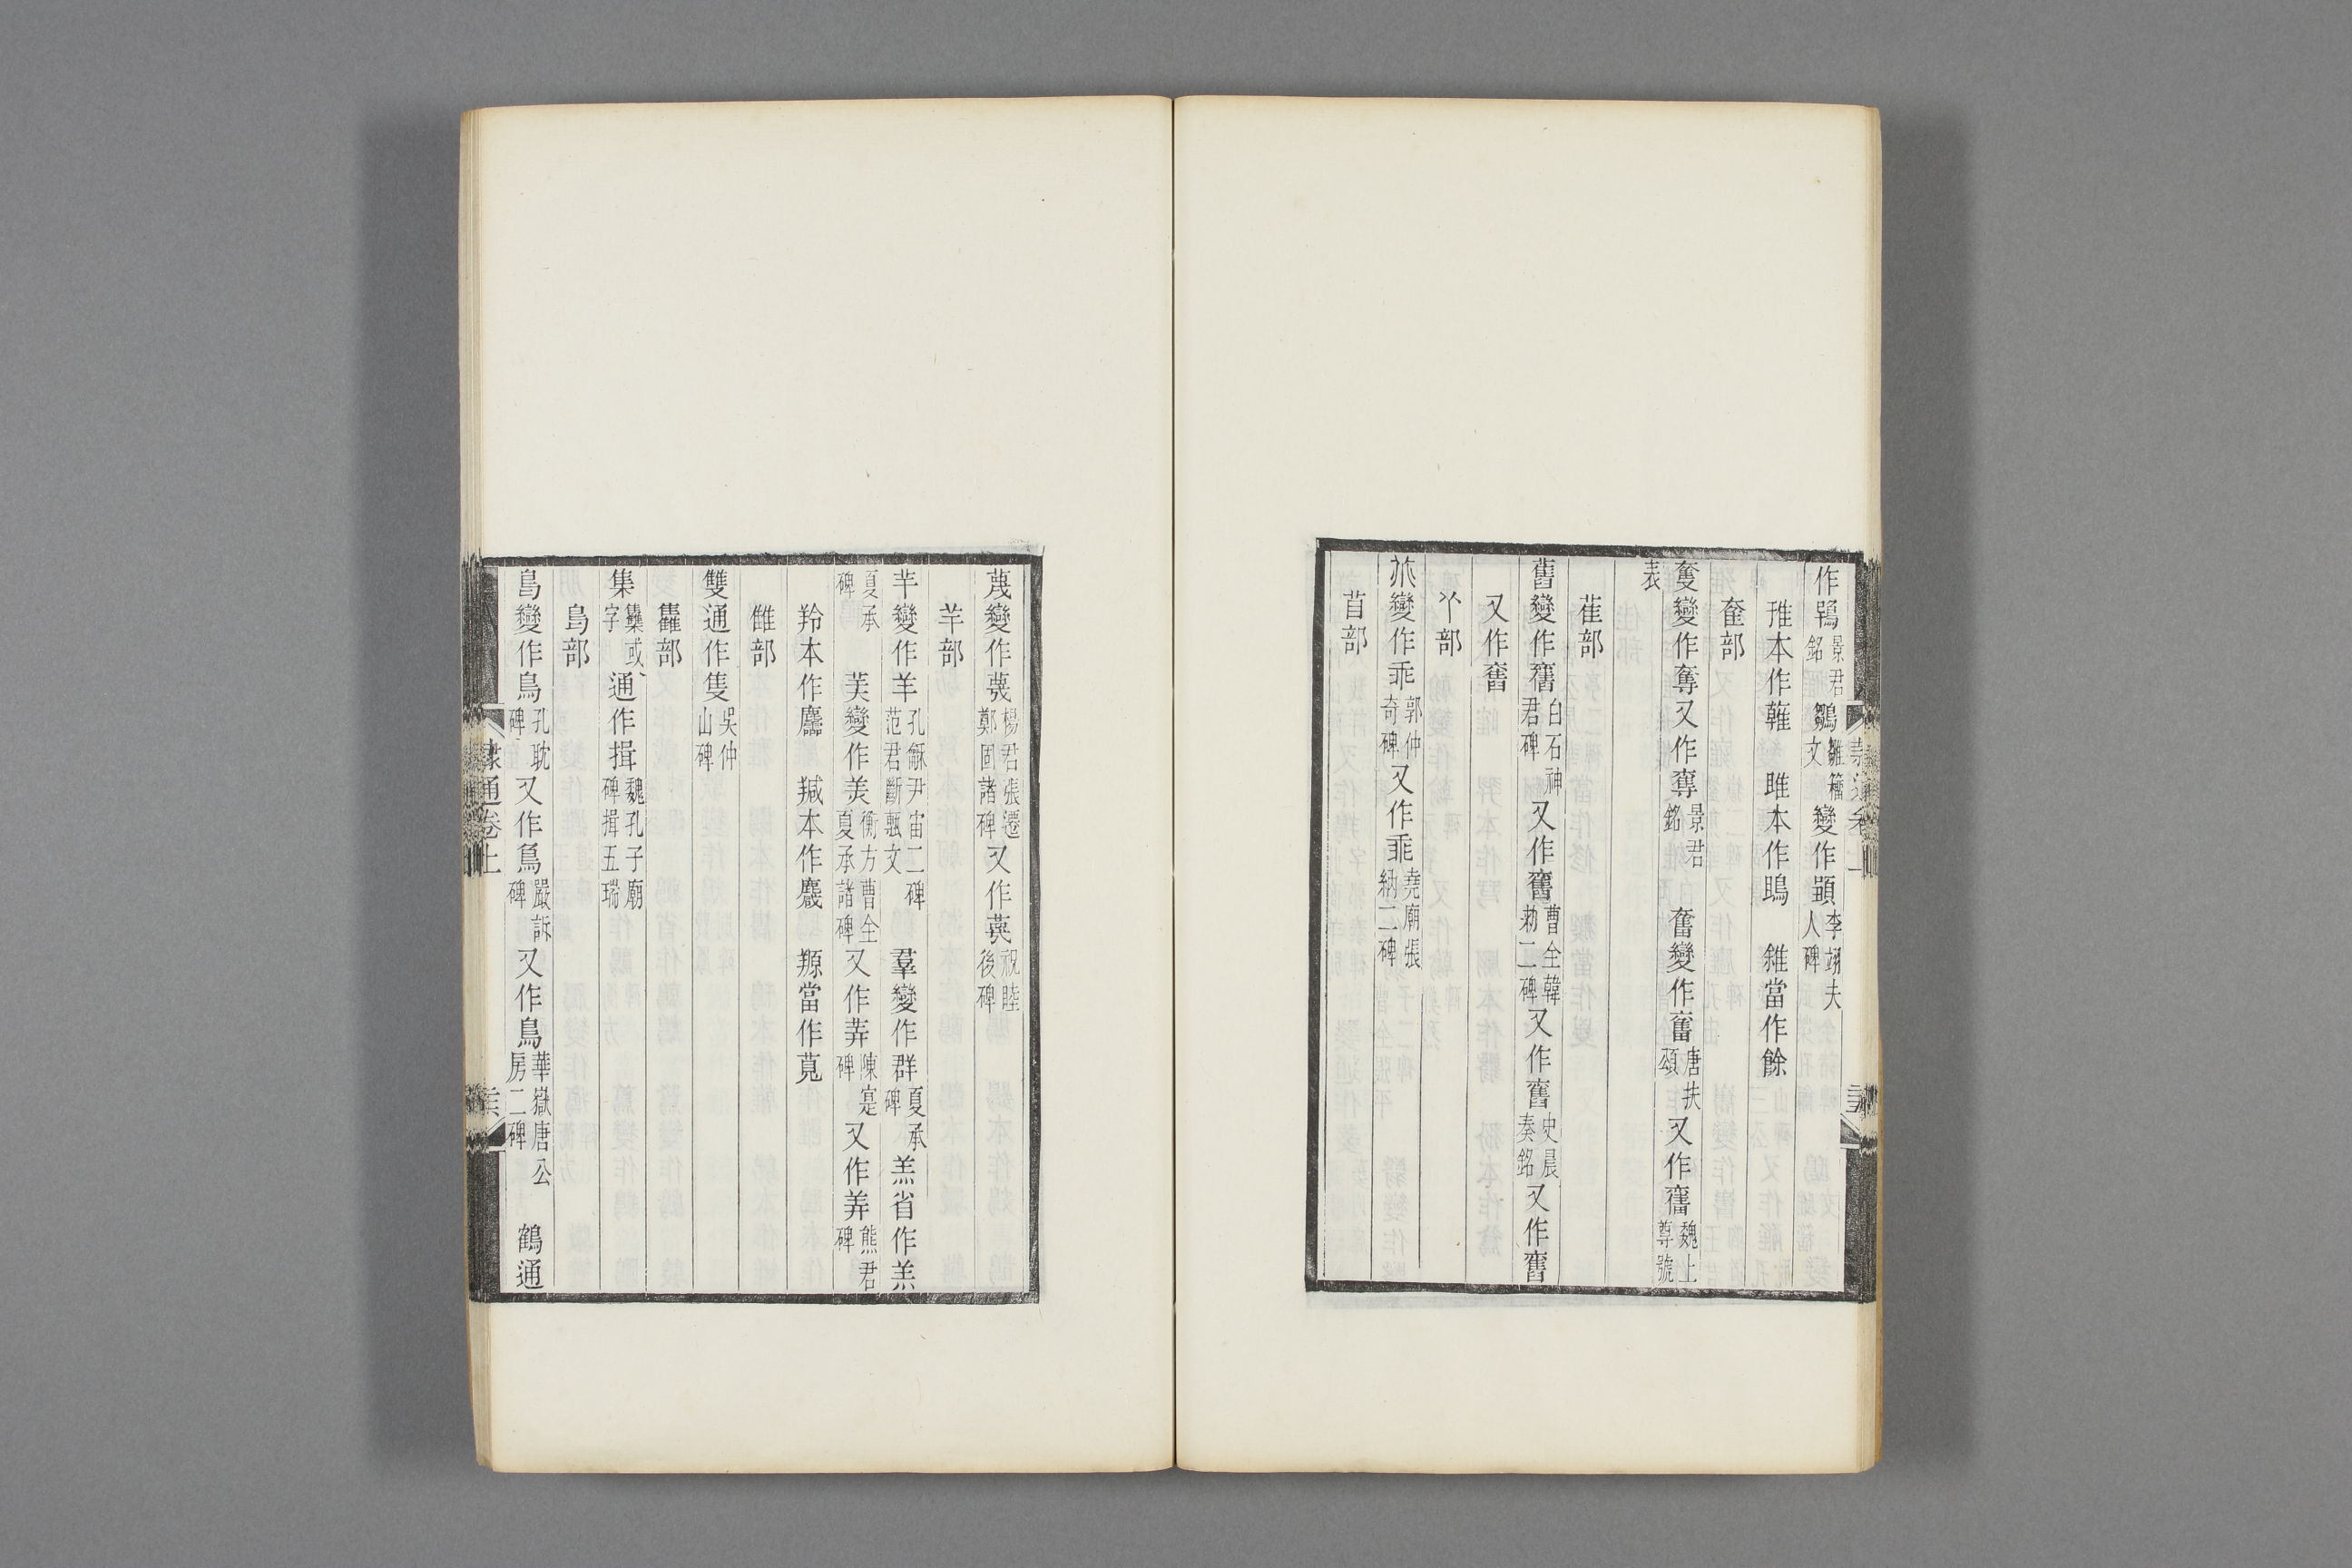 作鶚景君銘 鶵雛籀文變作顕李翊夫人碑
琟本作䨄 雎本作鴡 雓當作餘
奞部
奪變作奪又作奪景君銘 奮變作奮唐扶頌又作奮魏上尊號
表
雈部
舊變作舊白石神君碑又作舊曹全韓勑二碑又作舊史晨奏銘又作舊
又作舊
𠁥部
𠁁變作乖郭仲奇碑又作乖堯廟張納二碑
𥄕部
蔑變作蔑楊君張遷鄭固諸碑又作蔑祝睦後碑
羊部
羊變作羊孔龢尹宙二碑范君斷瓾文 羣變作群夏承碑羔省作羔
夏承碑 美變作美衡方曹全夏承諸碑又作美陳寔碑又作美熊君碑
羚本作麢 羬本作麙 羱當作莧
雔部
雙通作隻吳仲山碑
雥部
集雧或字通作揖魏孔子廟碑揖五瑞
鳥部
鳥變作鳥孔耽碑又作鳥嚴訢碑又作鳥華嶽唐公房二碑 鶴通
隸通卷上